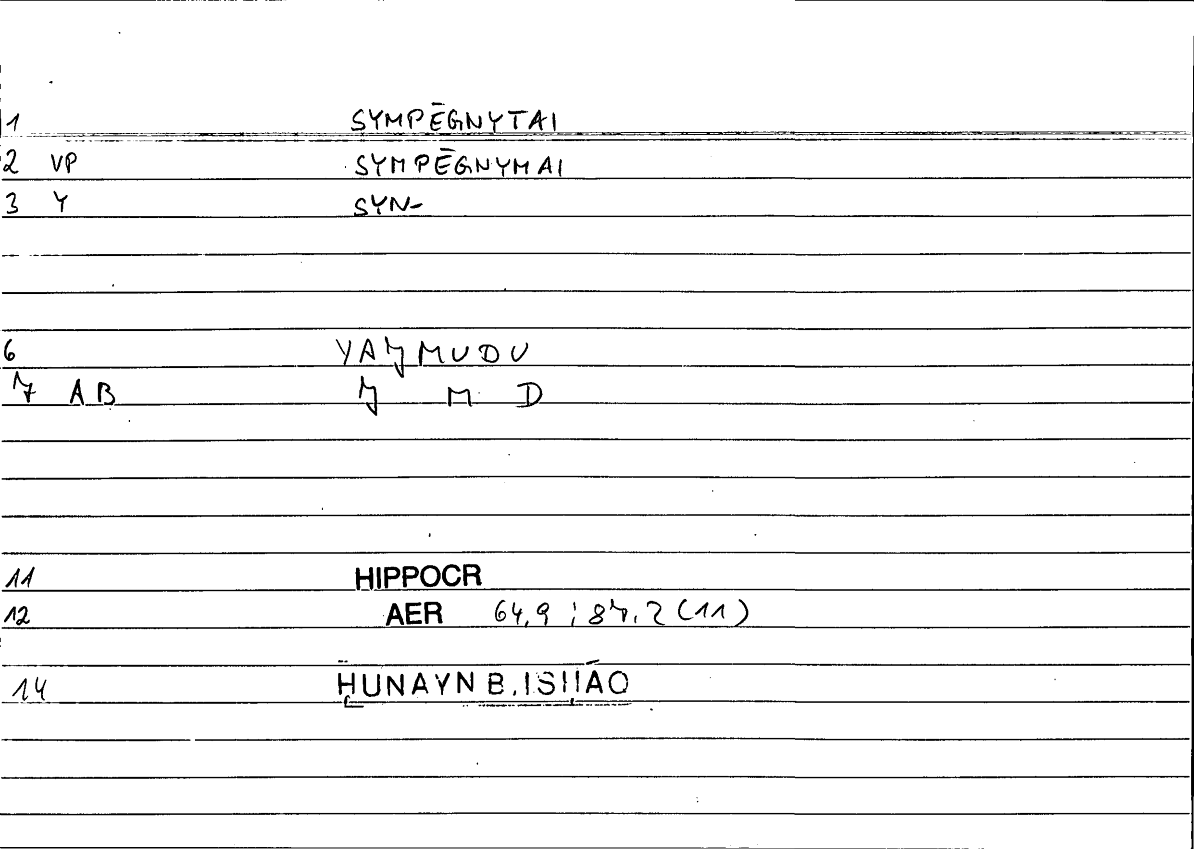 1 SYMPĒGNYTAI
2 VP SYMPĒGNYMAI
3 Y SYN-
6 YAJMUDU
7 AB J M D
11 HIPPOCR
12 AER 64,9 ; 87,2 (11)
14 ḤUNAYN B. ISḤĀQ